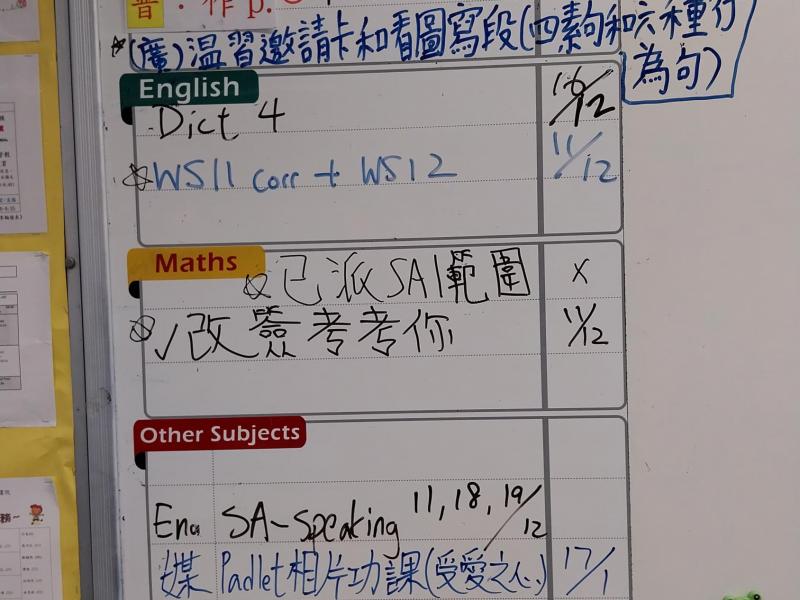 普·作 p.
*(廣)温習邀請卡和看圖寫段(四素句和六種行為句)
English
Dict 4 16/12
☆WS11 corr + WS12 11/12
Maths
☆已派SA1範圍 x
☆✓改簽考考你 11/12
Other Subjects
Eng SA-Speaking 11, 18, 19/12
媒 Padlet相片功課(受愛之心) 17/1
務~